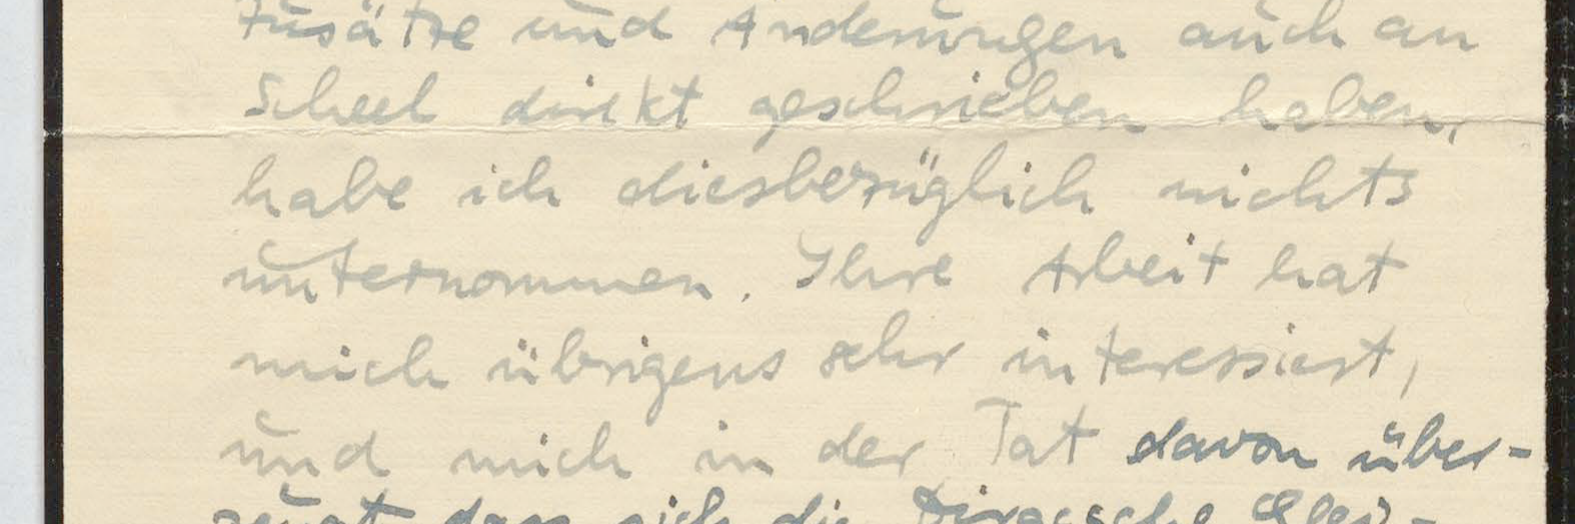 Zusätze und Änderungen auch an
Scheel direkt geschrieben haben,
habe ich diesbezüglich nichts
unternommen. Ihre Arbeit hat
mich übrigens sehr interessiert,
und mich in der Tat davon über-
zeugt, dass sich die Diracsche Glei-